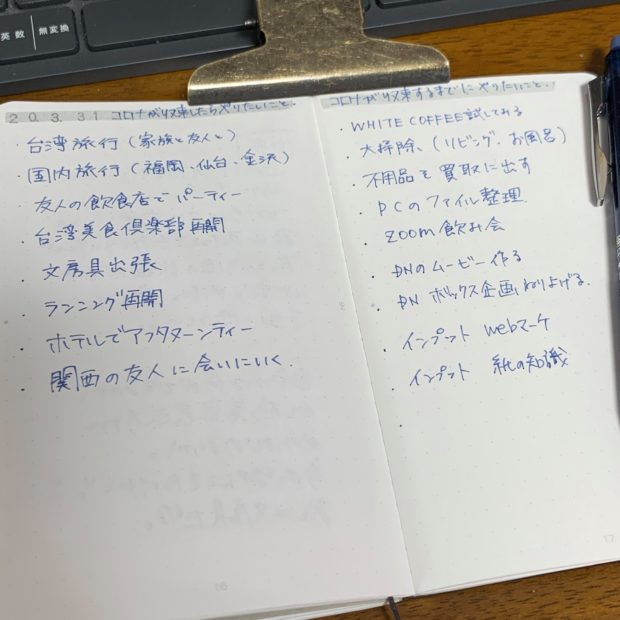 英数
無変換
20.3.31 コロナが収束したらやりたいこと。
・台湾旅行(家族と友人と)
・国内旅行(福岡、仙台、金沢)
・友人の飲食店でパーティー
・台湾美食倶楽部再開
・文房具出張
・ランニング再開
・ホテルでアフタヌーンティー
・関西の友人に会いにいく。
16
コロナが収束するまでにやりたいこと。
・WHITE COFFEE試してみる
・大掃除、(リビング、お風呂)
・不用品を買取に出す
・PCのファイル整理
・ZOOM飲み会
・DNのムービー作る
・DN ボックス企画ねりよげる。
・インプット webマーケ
・インプット 紙の知識
17